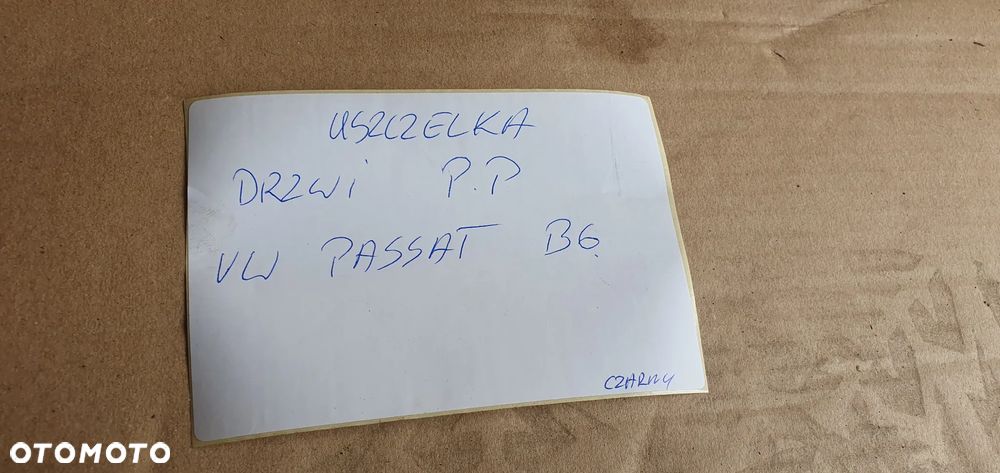 USZCZELKA
DRZWI P.P
VW PASSAT B6.
CZARNY
OTOMOTO